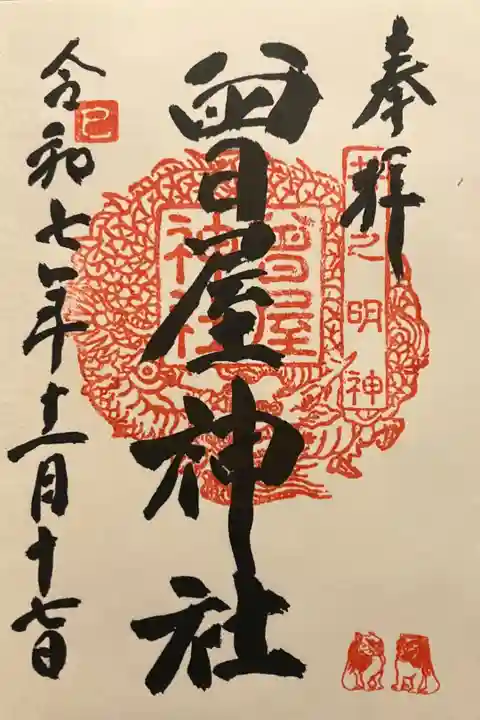 奉拝
井之明神
曽屋神社
曽屋神社
令和七年十二月十七日
巳